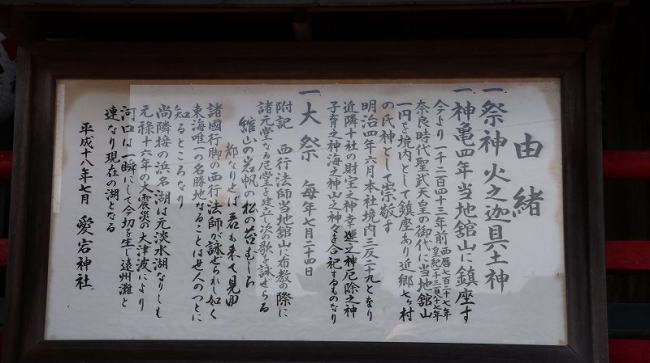 由緒
一、祭神 火之迦具土神
一、神亀四年当地舘山に鎮座す
今より一千二百四十三年前 西暦七百二十七年 皇紀千三百八十七年
奈良時代聖武天皇の御代に当地舘山
一円を境内として鎮座あり近郷七ヶ村
の氏神として崇敬す
明治四年六月本社境内三反二十九となり
近隣十社の財宝之神幸運之神厄除之神
子育之神海之神山之神々を合祀するものなり
一大祭 毎年七月二十四日
附記 西行法師当地舘山に布教の際に
諸元堂なる尼堂を建立し次の歌を詠せらる
舘山の岩帆の松の苔むしろ
都なりせば君も来て見由
諸國行脚の西行法師が詠せられし如く
東海唯一の名勝地なることは世人のつとに
知るところなり
尚隣接の浜名湖は元淡水湖なりしも
元禄十六年の大震災の大津波により
河口は一瞬にして今切を生じ遠州灘と
連なり現在の湖となる
平成十八年七月 愛宕神社